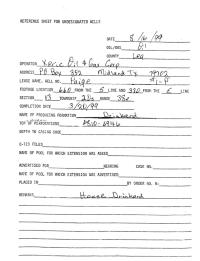 REFERENCE SHEET FOR UNDESIGNATED WELLS
DATE 8/16/99
OIL/GAS Oil
COUNTY Lea
OPERATOR Xeric Oil & Gas Corp
ADDRESS PO Box 352 Midland Tx 79702
LEASE NAME, WELL NO. Paige #1-P
FOOTAGE LOCATION 660 FROM THE S LINE AND 330 FROM THE E LINE
SECTION 13 TOWNSHIP RANGE 38e
COMPLETION DATE 3/20/99
NAME OF PRODUCING FORMATION Drinkard
TOP OF PERFORATIONS 6810-6946
DEPTH TO CASING SHOE
C-123 FILED
NAME OF POOL FOR WHICH EXTENSION WAS ASKED
ADVERTISED FOR HEARING CASE NO.
NAME OF POOL FOR WHICH EXTENSION WAS ADVERTISED
PLACED IN BY ORDER NO. R-
REMARKS House Drinkard